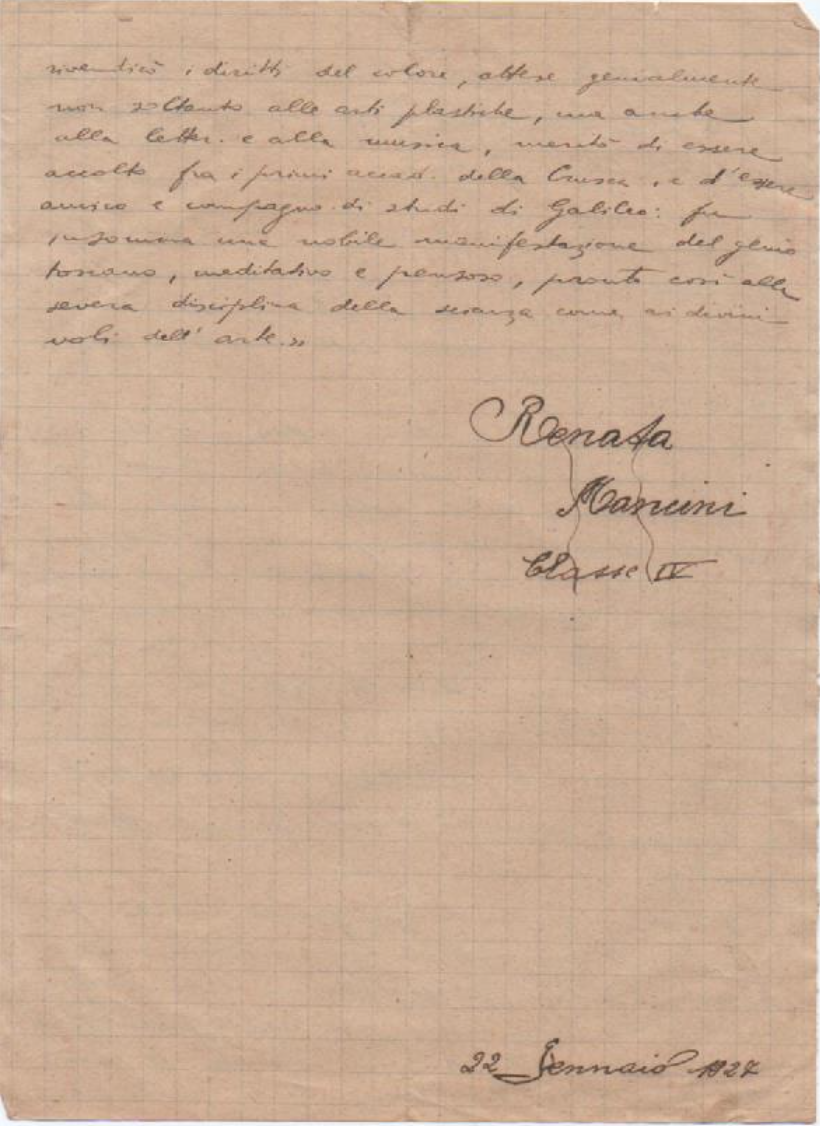 rivendicò i diritti del colore, attese genialmente
non soltanto alle arti plastiche, ma anche
alla letter. e alla musica, meritò di essere
accolto fra i primi accad. della Crusca, e d'essere
amico e compagno di studi di Galileo: fu
insomma una nobile manifestazione del genio
toscano, meditativo e pensoso, pronto così alla
severa disciplina della scienza come ai divini
voli dell'arte.»
Renata
Mancini
Classe IV
22 Gennaio 1927